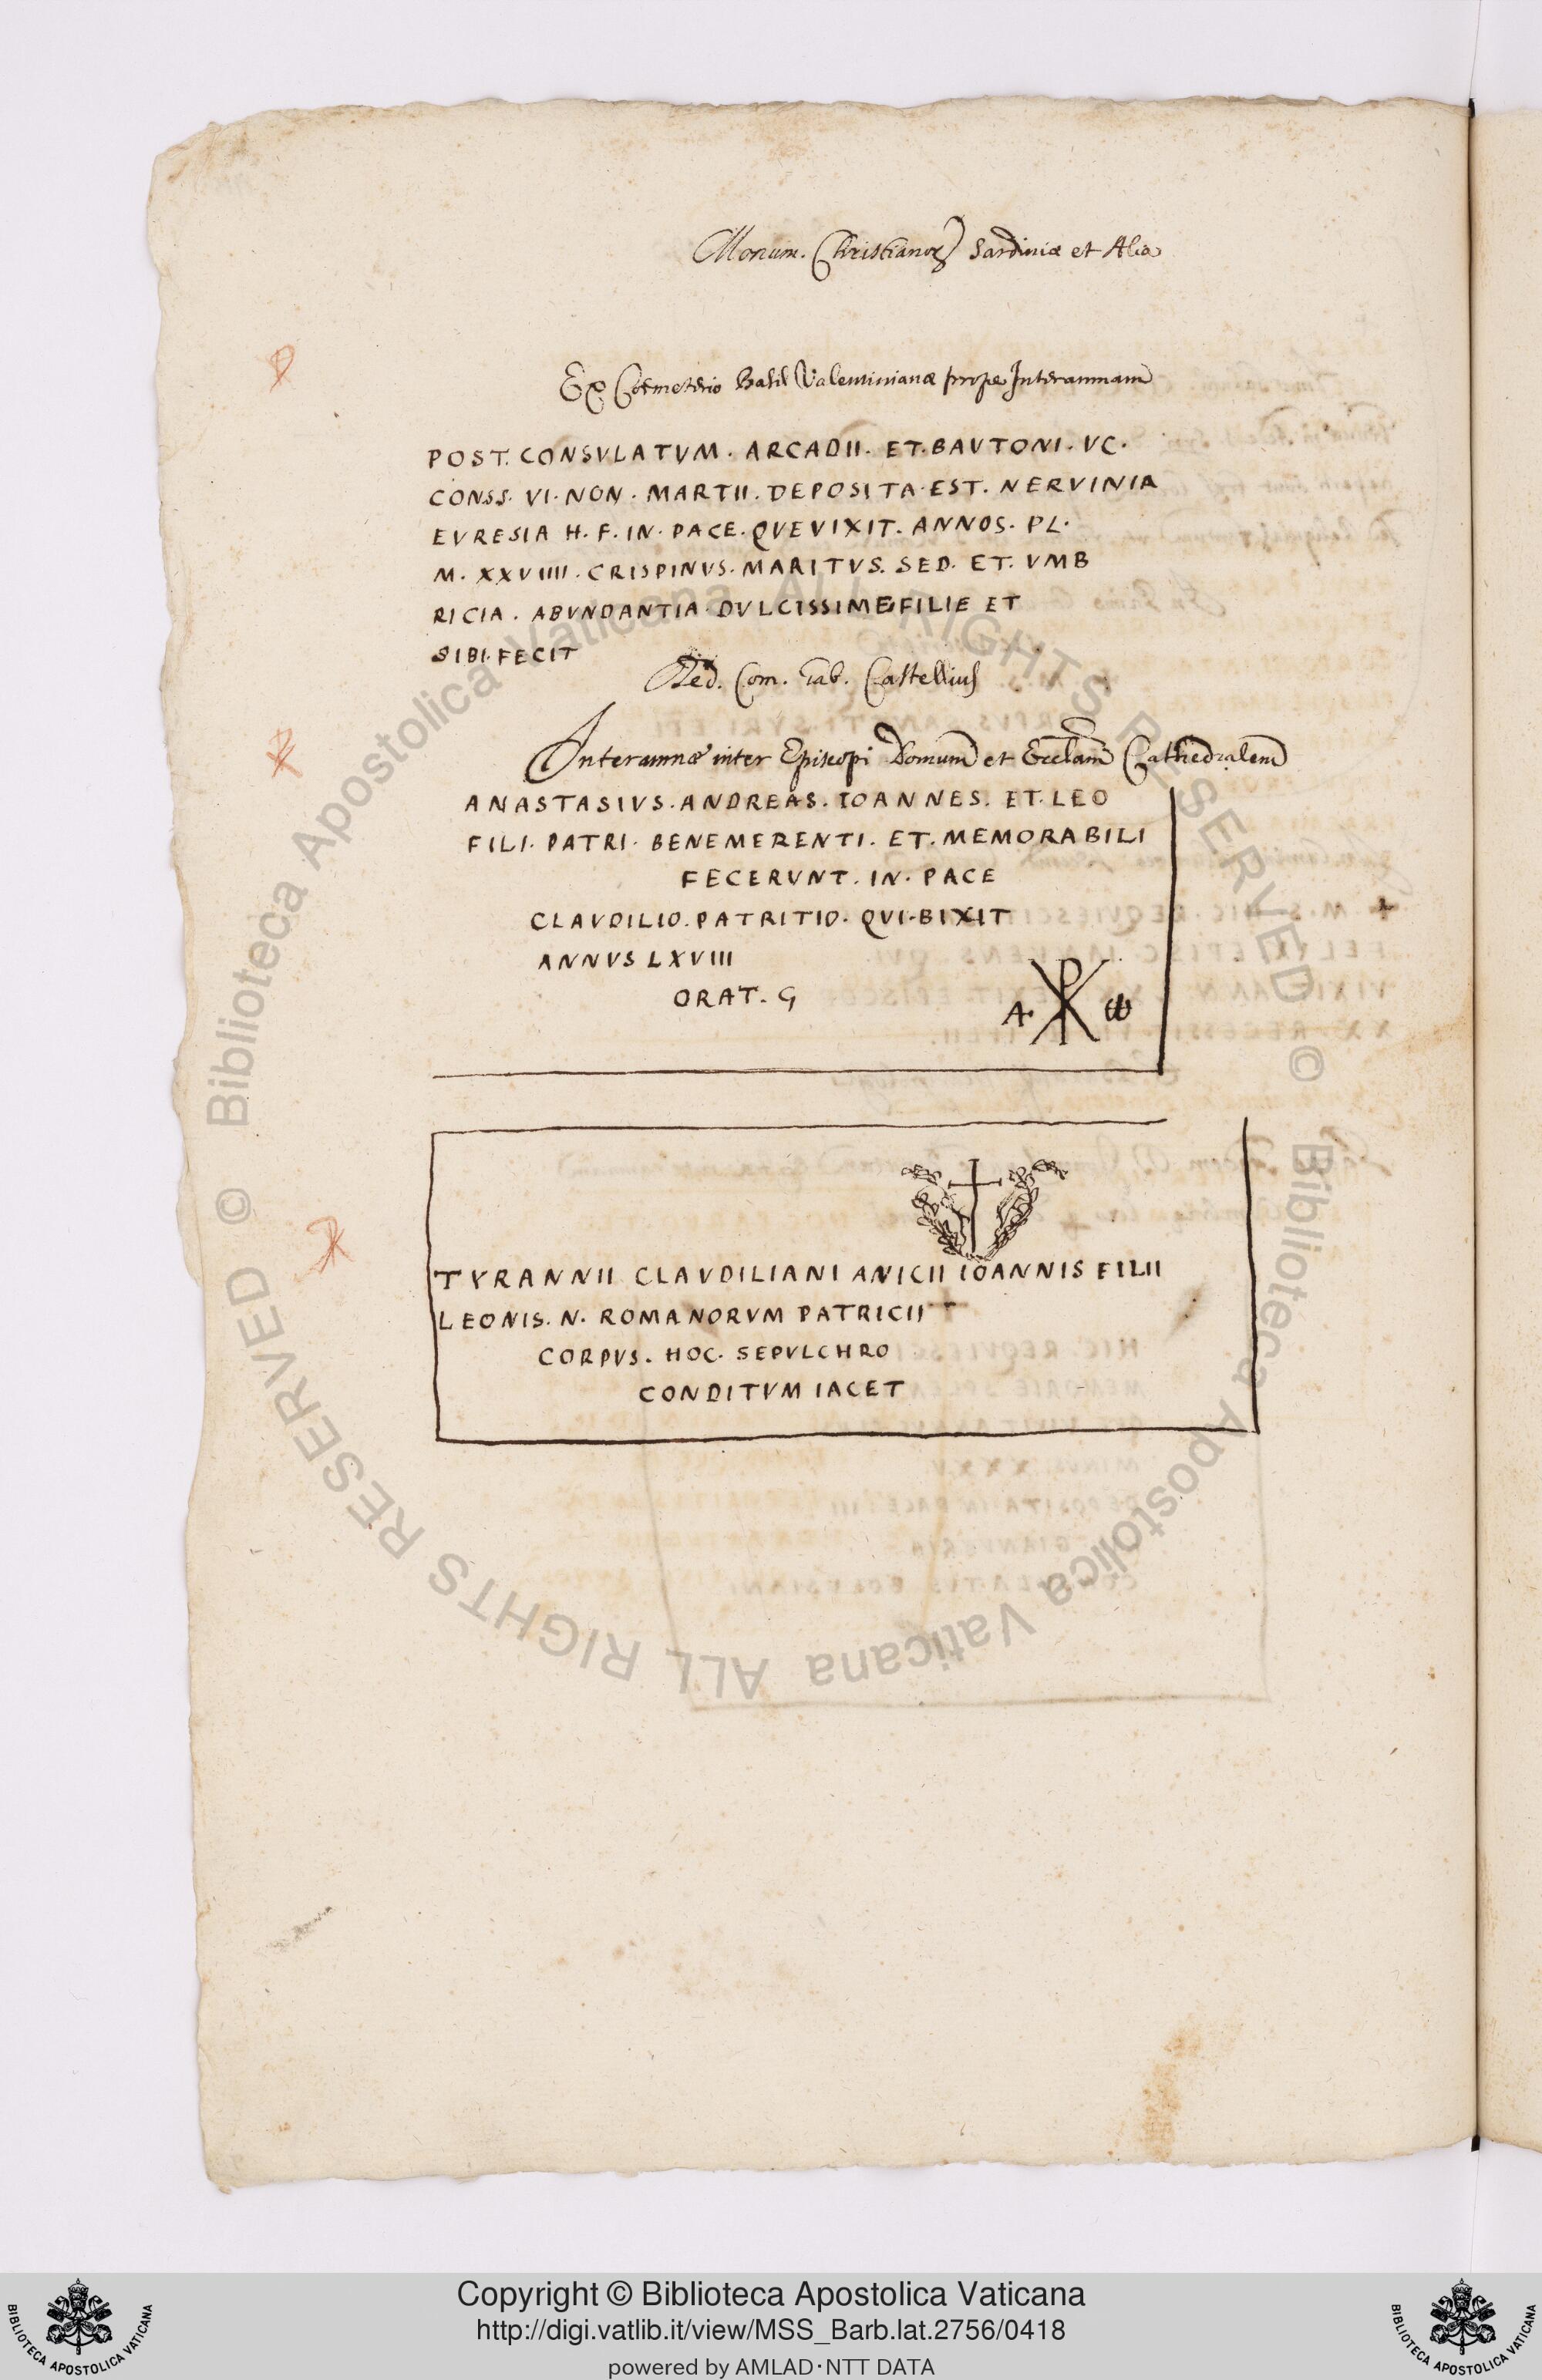 Monum. Christianoꝝ Sardiniæ et Alia
Ex Coemeterio Basil Valentinianæ prope Interamnam
POST. CONSVLATVM. ARCADII. ET. BAVTONI. VC.
CONSS. VI. NON. MARTII. DEPOSITA. EST. NERVINIA
EVRESIA H. F. IN. PACE. QVEVIXIT. ANNOS. PL.
M. XXVIIII. CRISPINVS. MARITVS. SED. ET. VMB
RICIA. ABVNDANTIA. DVLCISSIME FILIE ET
SIBI. FECIT
Ded. Com. Gab. Castellius
Interamnæ inter Episcopi Domum et Ecclam Cathedralem
ANASTASIVS. ANDREAS. IOANNES. ET. LEO
FILI. PATRI. BENEMERENTI. ET. MEMORABILI
FECERVNT. IN. PACE
CLAVDILIO. PATRITIO. QVI. BIXIT
ANNVS LXVIII
ORAT. G
A ☧ ω
TYRANNII CLAVDILIANI ANICII IOANNIS FILII
LEONIS. N. ROMANORVM PATRICII
CORPVS. HOC. SEPVLCHRO
CONDITVM IACET
© Biblioteca Apostolica Vaticana ALL RIGHTS RESERVED
© Biblioteca Apostolica Vaticana ALL RIGHTS RESERVED
Copyright © Biblioteca Apostolica Vaticana
http://digi.vatlib.it/view/MSS_Barb.lat.2756/0418
powered by AMLAD·NTT DATA
BIBLIOTECA APOSTOLICA VATICANA
BIBLIOTECA APOSTOLICA VATICANA